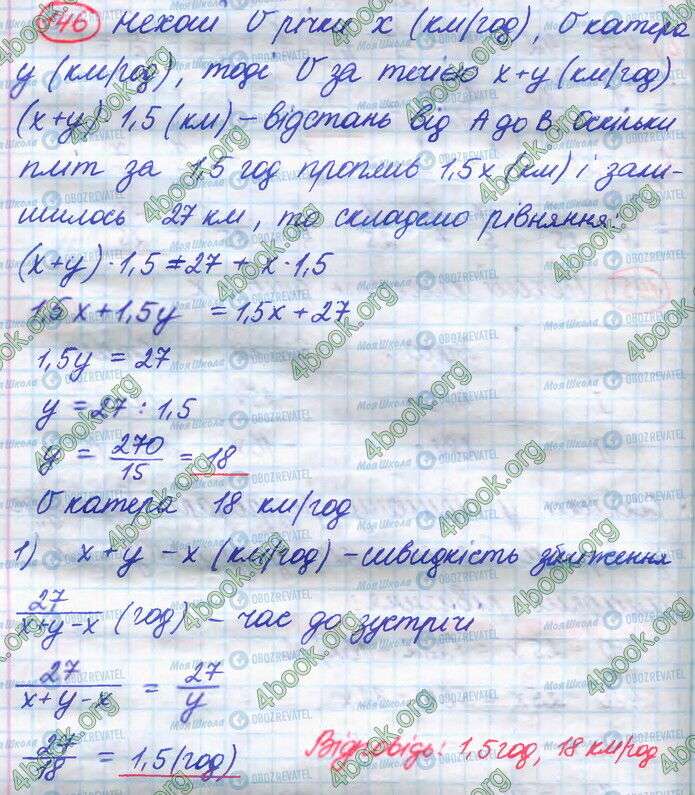 46 Нехай υ річки x (км/год), υ катера
y (км/год), тоді υ за течією x+y (км/год)
(x+y) 1,5 (км) – відстань від А до В. Оскільки
пліт за 1,5 год проплив 1,5x (км) і зали-
шилось 27 км, то складемо рівняння:
(x+y)·1,5=27 + x·1,5
1,5x+1,5y = 1,5x+27
1,5y = 27
y = 27 : 1,5
y = 270/15 = 18
υ катера 18 км/год
1) x+y -x (км/год) – швидкість зближення
27/(x+y-x) (год) – час до зустрічі
27/(x+y-x) = 27/y
27/18 = 1,5(год)
Відповідь: 1,5 год, 18 км/год